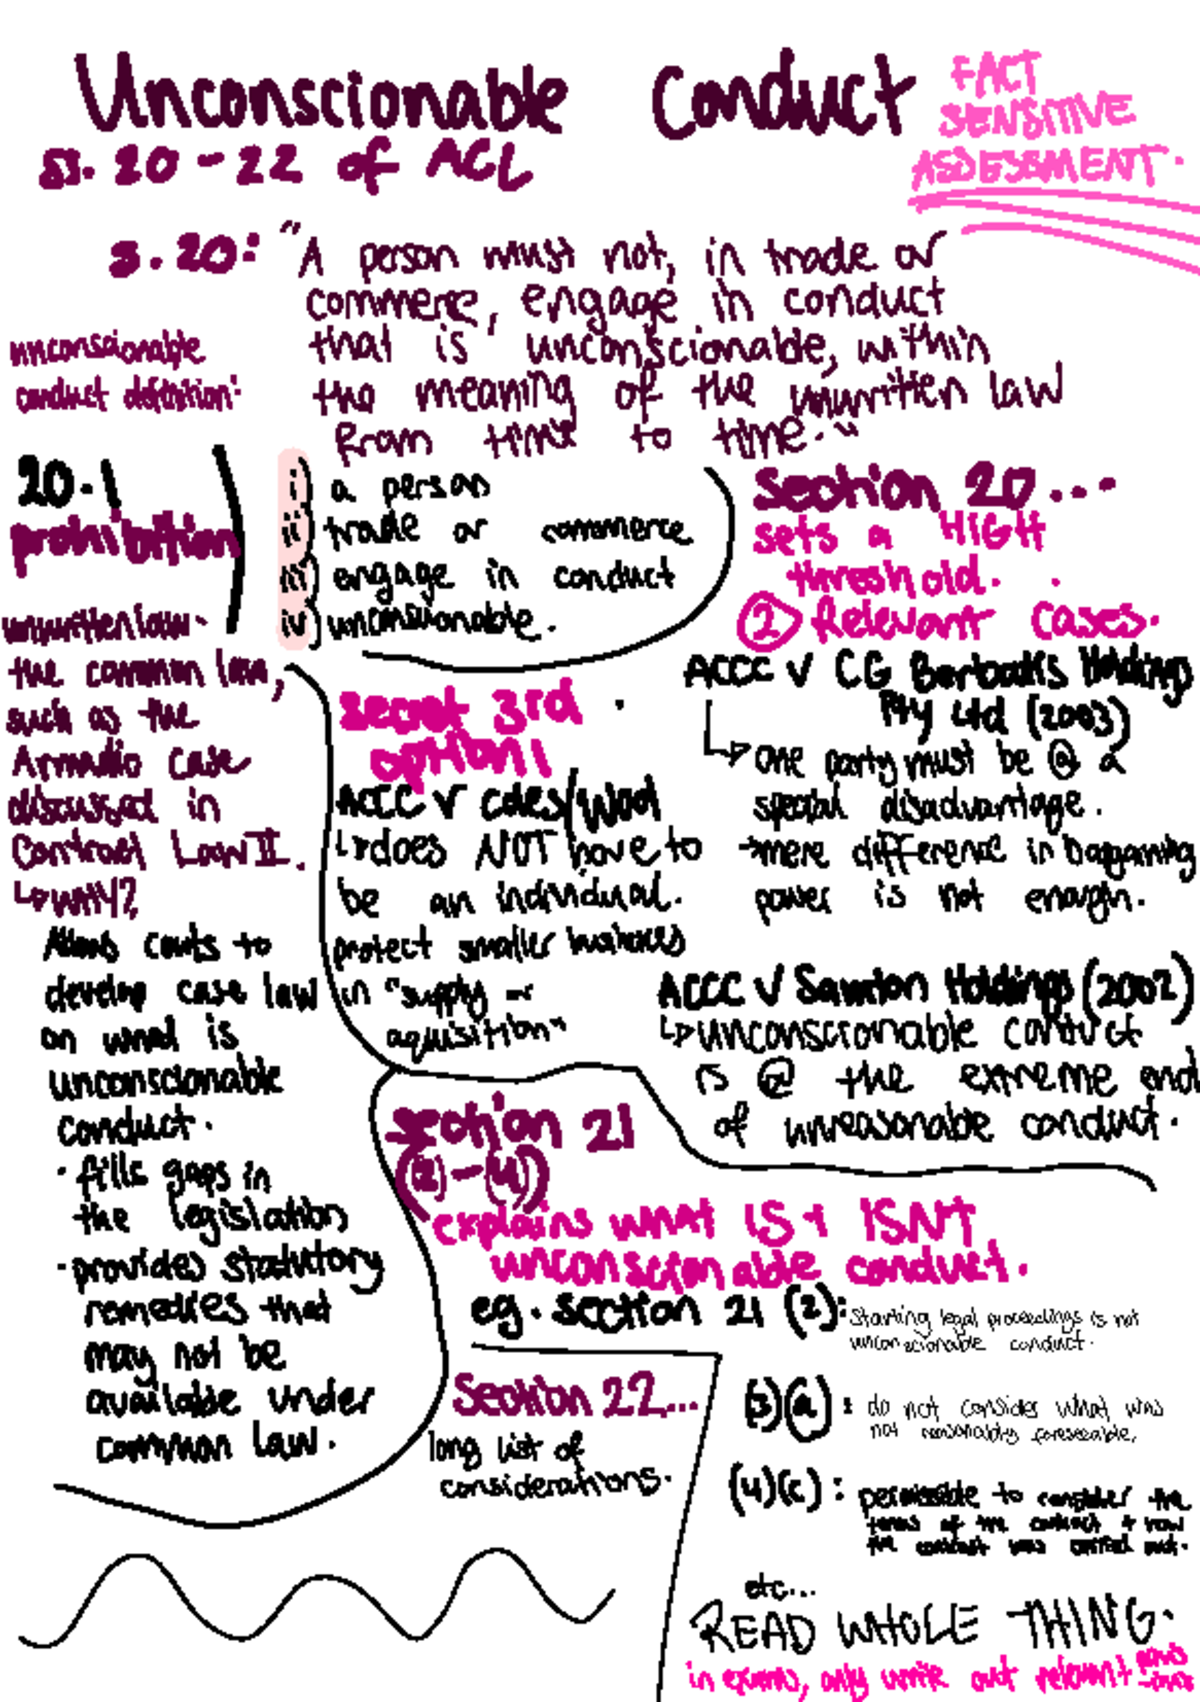 Unconscionable Conduct
FACT
SENSITIVE
ASSESSMENT.
ss. 20 - 22 of ACL
s. 20: "A person must not, in trade or
commerce, engage in conduct
that is unconscionable, within
the meaning of the unwritten law
from time to time."
unconscionable
conduct definition:
20.1
prohibition
i) a person
ii) trade or commerce
iii) engage in conduct
iv) unconscionable.
Section 20...
sets a HIGH
threshold.
② Relevant cases.
ACCC v CG Berbatis Holdings
Pty Ltd (2003)
↳ one party must be @ a
special disadvantage.
→ mere difference in bargaining
power is not enough.
ACCC v Samton Holdings (2002)
↳ unconscionable conduct
is @ the extreme end
of unreasonable conduct.
unwritten law.
the common law,
such as the
Amadio case
discussed in
Contract Law II.
↳ WHY?
Allows courts to
develop case law
on what is
unconscionable
conduct.
· fills gaps in
the legislation
· provides statutory
remedies that
may not be
available under
common law.
secret 3rd
option!
ACCC v Coles/Wool
↳ does NOT have to
be an individual.
protect smaller businesses
in "supply or
aquisition"
section 21
(2)-(4))
explains what IS + ISNT
unconscionable conduct.
eg. section 21 (2): Starting legal proceedings is not
unconscionable conduct.
(3)(a): do not consider what was
not reasonably foreseeable.
(4)(c): permissible to consider the
terms of the contract + how
the contract was carried out.
etc...
READ WHOLE THING.
in exams, only write out relevant
Section 22...
long list of
considerations.